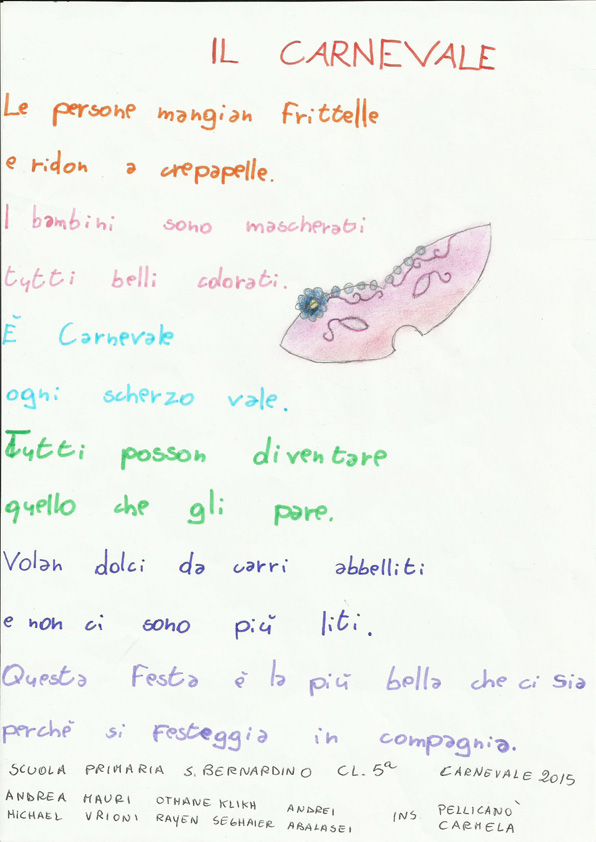 IL CARNEVALE
Le persone mangian frittelle
e ridon a crepapelle.
I bambini sono mascherati
tutti belli colorati.
È Carnevale
ogni scherzo vale.
Tutti posson diventare
quello che gli pare.
Volan dolci da carri abbelliti
e non ci sono più liti.
Questa Festa è la più bella che ci sia
perchè si festeggia in compagnia.
SCUOLA PRIMARIA S. BERNARDINO CL. 5ª CARNEVALE 2015
ANDREA MAURI OTHANE KLIKH ANDREI INS PELLICANÒ
MICHAEL VRIONI RAYEN SEGHAIER ABALASEI CARMELA